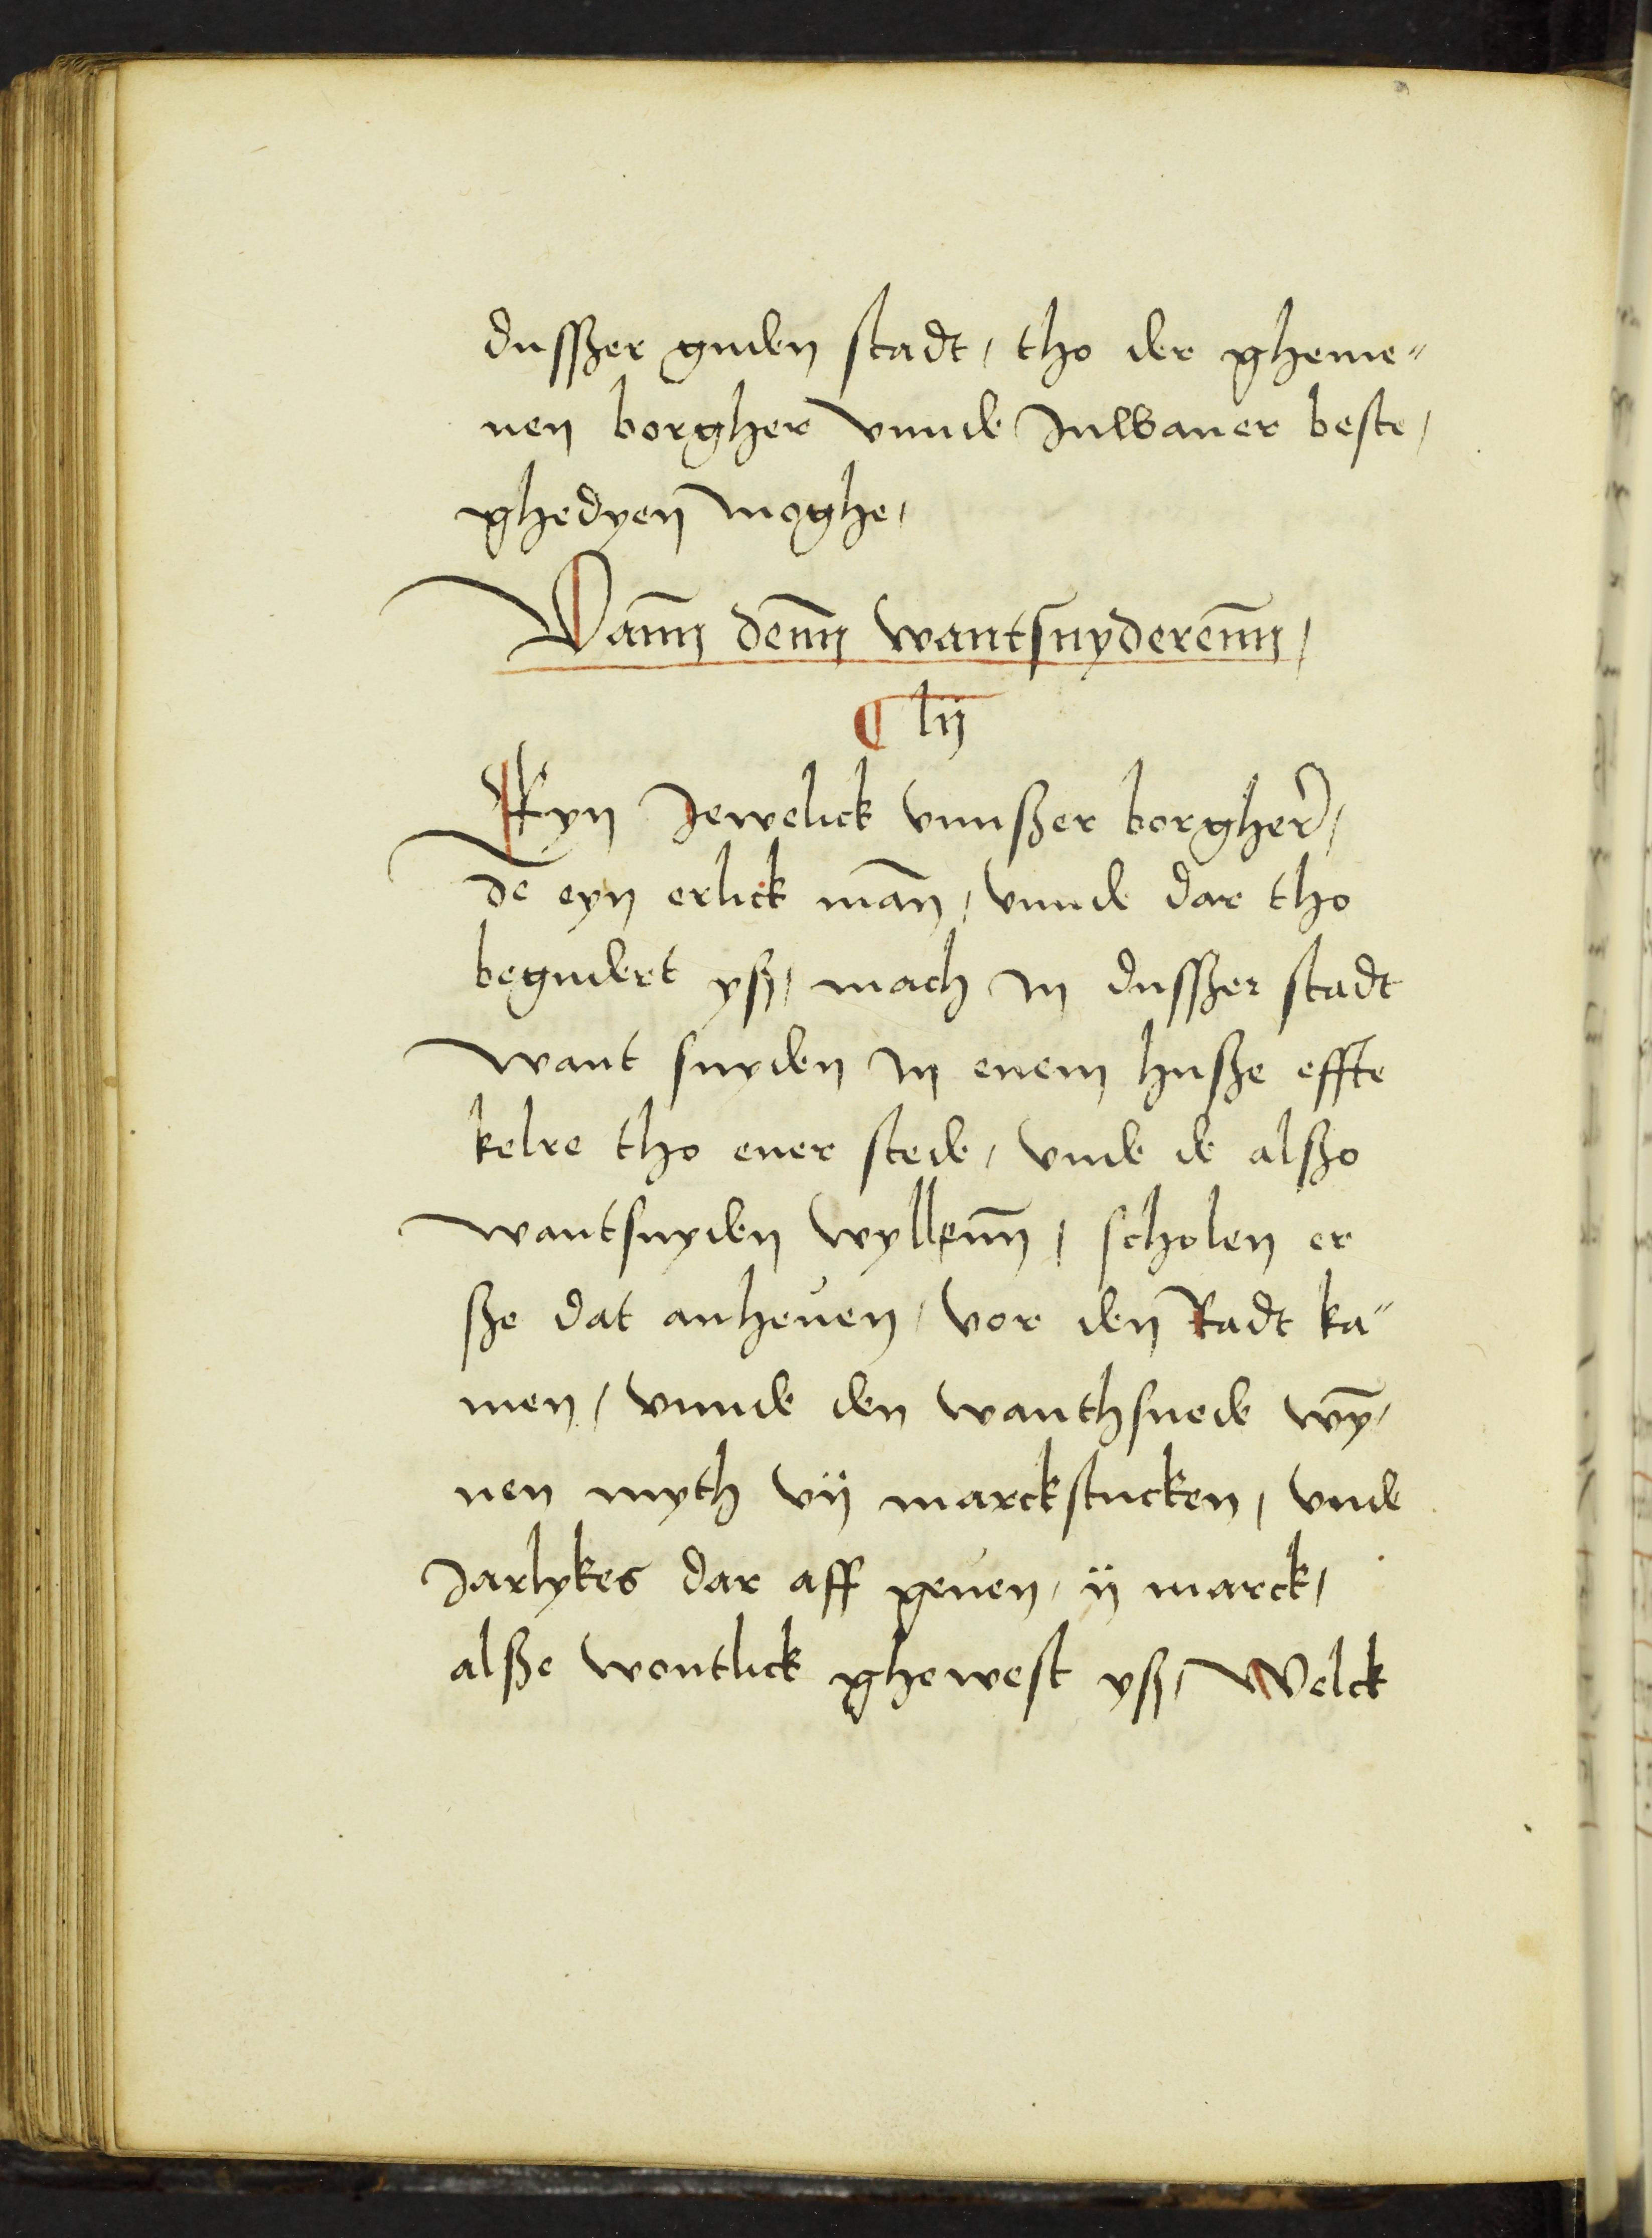 dussßer guden stadt, tho der gheme⸗
nen borgher vnnde Inwaner beste,
ghedyen moghe,
Vann̄ denn̄ wantsnyderenn̄,
¶ lij
Eyn Jewelick vnnßer borgher,
de eyn erlick man̄, vnnde dar tho
begudert yß, mach in dussßer stadt
want snyden in enem hußse effte
kelre tho ener stede, vnde de alßo
wantsnyden wyllenn̄, scholen er
ße dat anheuen, vor den Radt ka⸗
men, vnnde den wanthsnede wȳ,
nen myth vij marckstucken, vnde
Jarlykes dar aff geuen, ij marck,
alße wontlick ghewest yß, Welck